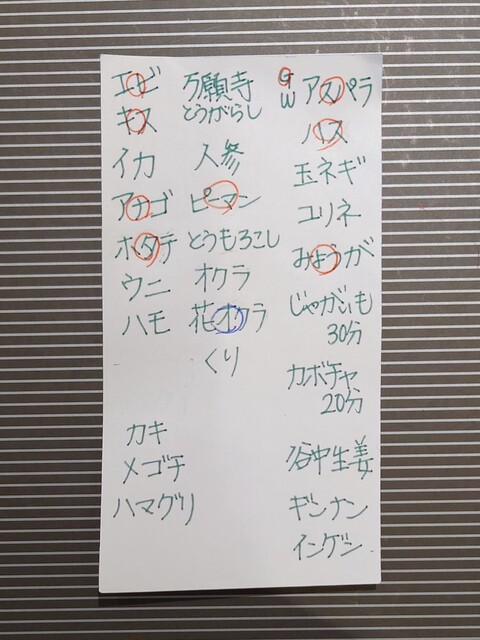 エビ
キス
イカ
アナゴ
ホタテ
ウニ
ハモ
カキ
メゴチ
ハマグリ
万願寺
とうがらし
人参
ピーマン
とうもろこし
オクラ
花オクラ
くり
GW アスパラ
ハス
玉ネギ
ユリネ
みょうが
じゃがいも
30分
カボチャ
20分
谷中生姜
ギンナン
インゲン